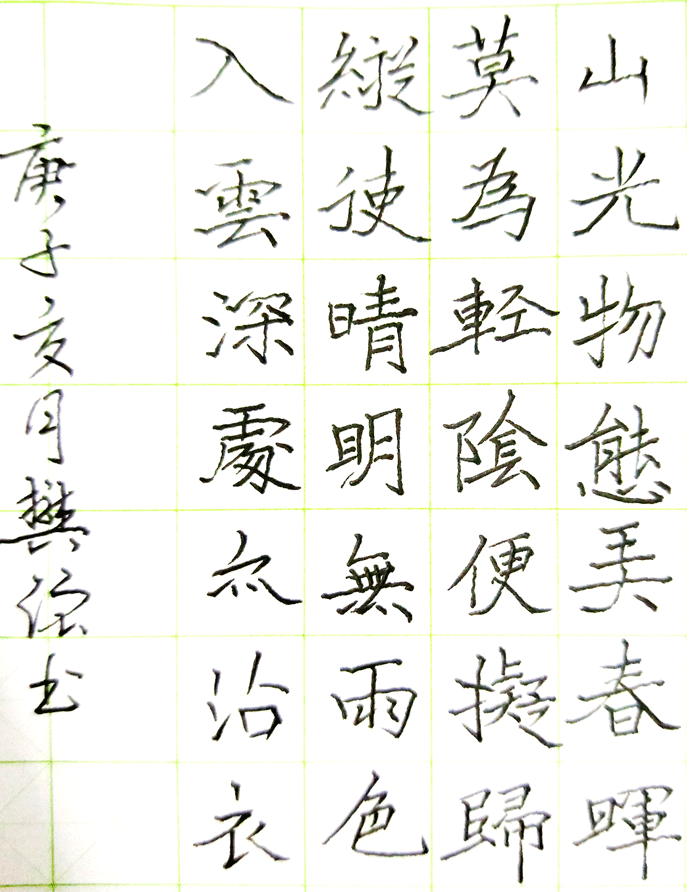 山光物態弄春暉
莫為軽陰便擬歸
縱使晴明無雨色
入雲深處亦沾衣
庚子亥月樊强书